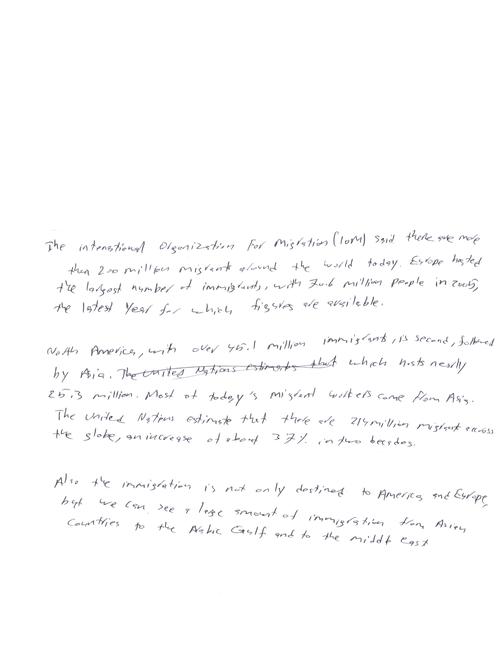 The international Organization for Migration (IOM) said there are more
than 200 million migrants around the world today. Europe hosted
the largest number of immigrants, with 70.6 million people in 2005,
the latest Year for which figures are available.
North America, with over 45.1 million immigrants, is second, followed
by Asia. The United Nations estimates that which hosts nearly
25.3 million. Most of today's migrant workers come from Asia.
The United Nations estimate that there are 214 million migrant across
the globe, an increase of about 37% in two decades.
Also the immigration is not only destined to America and Europe,
but we can see a large amount of immigration from Asian
Countries to the Arabic Gulf and to the middle east